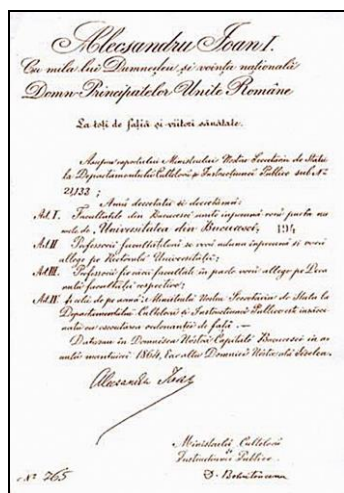 Alecsandru Ioan I.
Cu mila lui Dumnedeu și voința națională
Domn Principatelor Unite Române
La toți de față și viitori sănătate.
Asupra raportului Ministrului Nostru Secretariu de Stat
la Departamentulu Cultelorŭ și Instrucțiunei Publice sub No
21133 ;
Amŭ decretatŭ și decretămŭ:
Art. I. Facultățile din Bucuresci unite împreună vorŭ purta nu
mele de Universitatea din Bucuresci,
Art. II Profesorii facultățilorŭ se vorŭ aduna împreună și vorŭ
allege pe Rectorulŭ Universității;
Art. III. Profesorii fiecărei facultăți în parte vorŭ allege pe Deca
nulŭ facultății respective;
Art. IV. Ministrulŭ Nostru Secretariu de Stat la
Departamentulu Cultelorŭ și Instrucțiunei Publice este însărci
natŭ cu executarea ordonanței de față. —
Datu în Bucuresci în
1864,
Alecsandru Ioan
Ministrulŭ Cultelorŭ
și
Instrucțiunei Publice
D. Bolintineanu
No 765